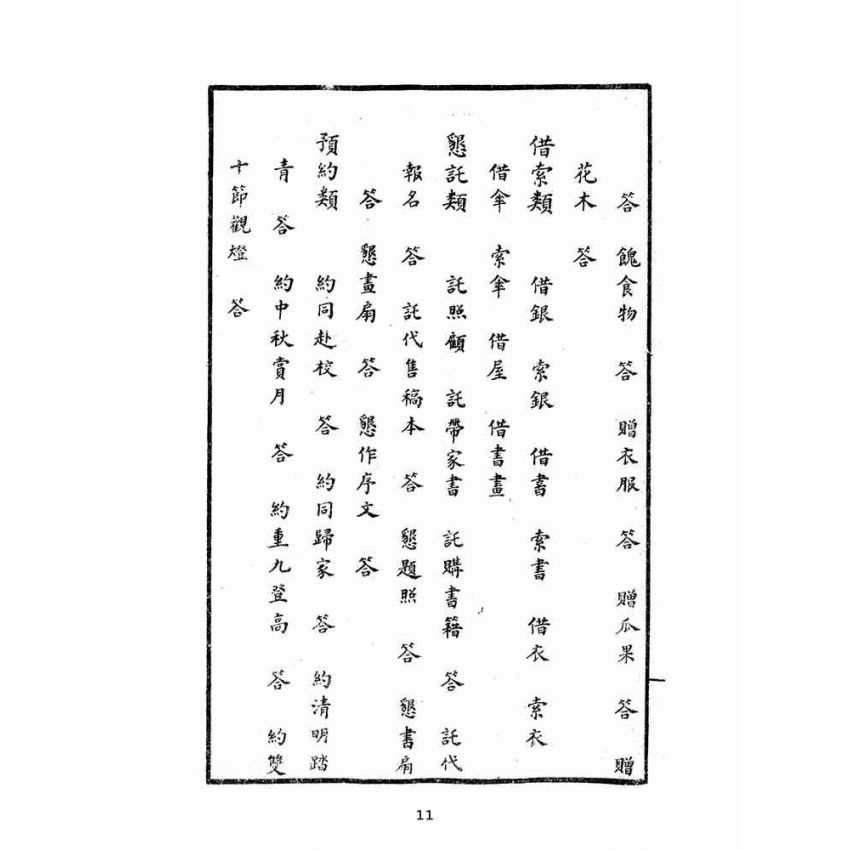 答 餽食物 答 贈衣服 答 贈瓜果 答 贈
花木 答
借索類 借銀 索銀 借書 索書 借衣 索衣
借傘 索傘 借屋 借書畫
懇託類 託照顧 託帶家書 託購書籍 答 託代
報名 答 託代售稿本 答 懇題照 答 懇書扇
答 懇畫扇 答 懇作序文 答
預約類 約同赴校 答 約同歸家 答 約清明踏
青 答 約中秋賞月 答 約重九登高 答 約雙
十節觀燈 答
11